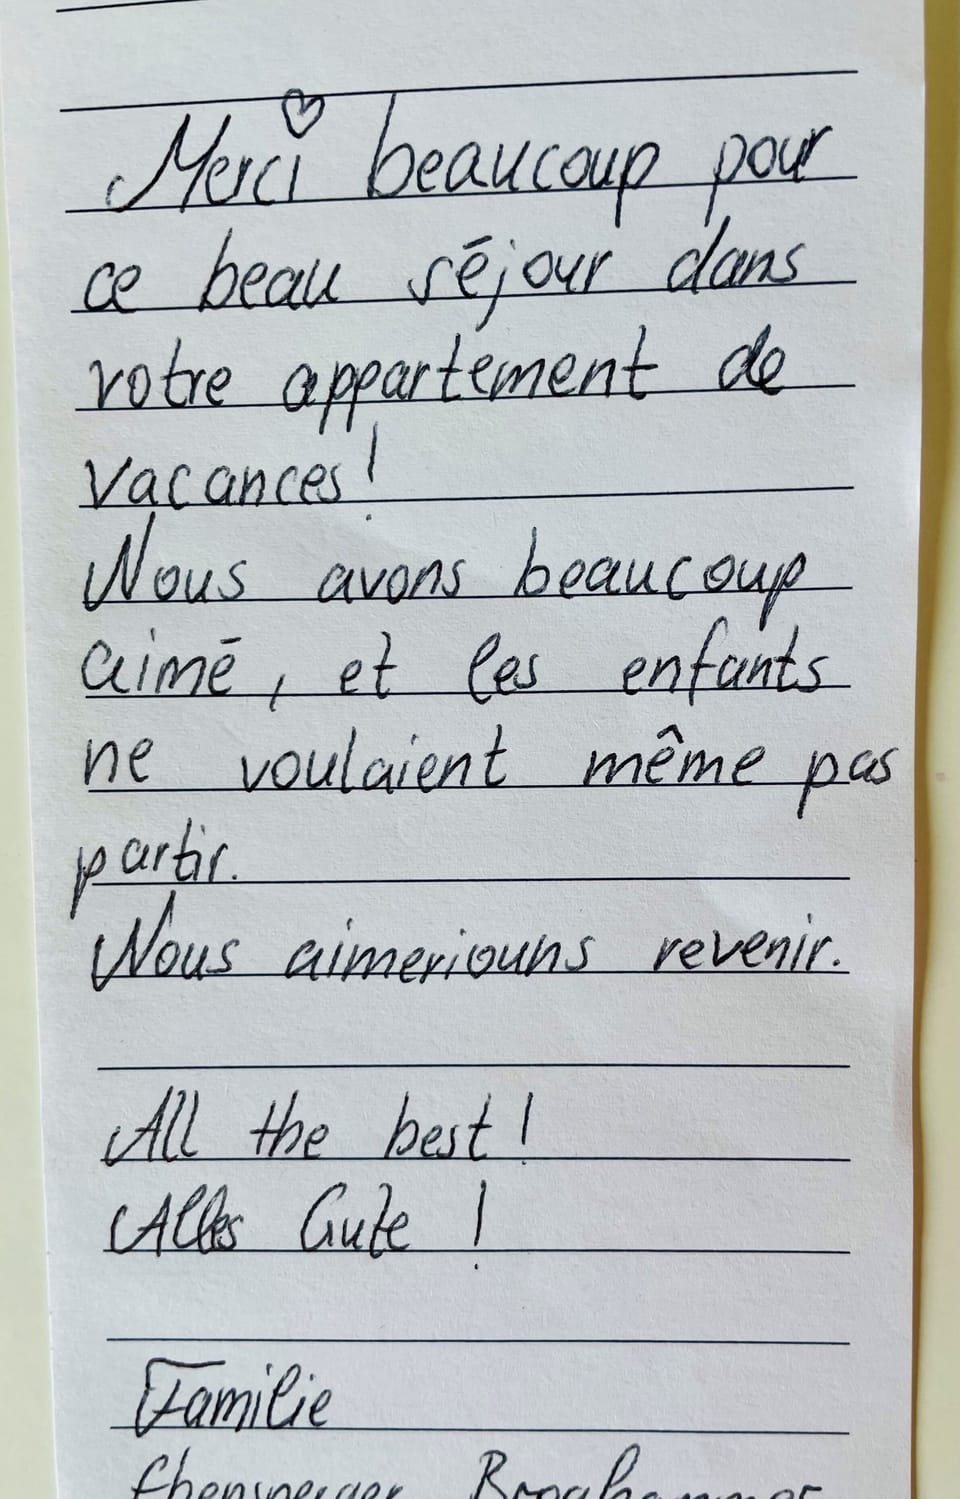 Merci beaucoup pour
ce beau séjour dans
votre appartement de
vacances!
Nous avons beaucoup
aimé, et les enfants
ne voulaient même pas
partir.
Nous aimeriouns revenir.
All the best!
Alles Gute!
Familie